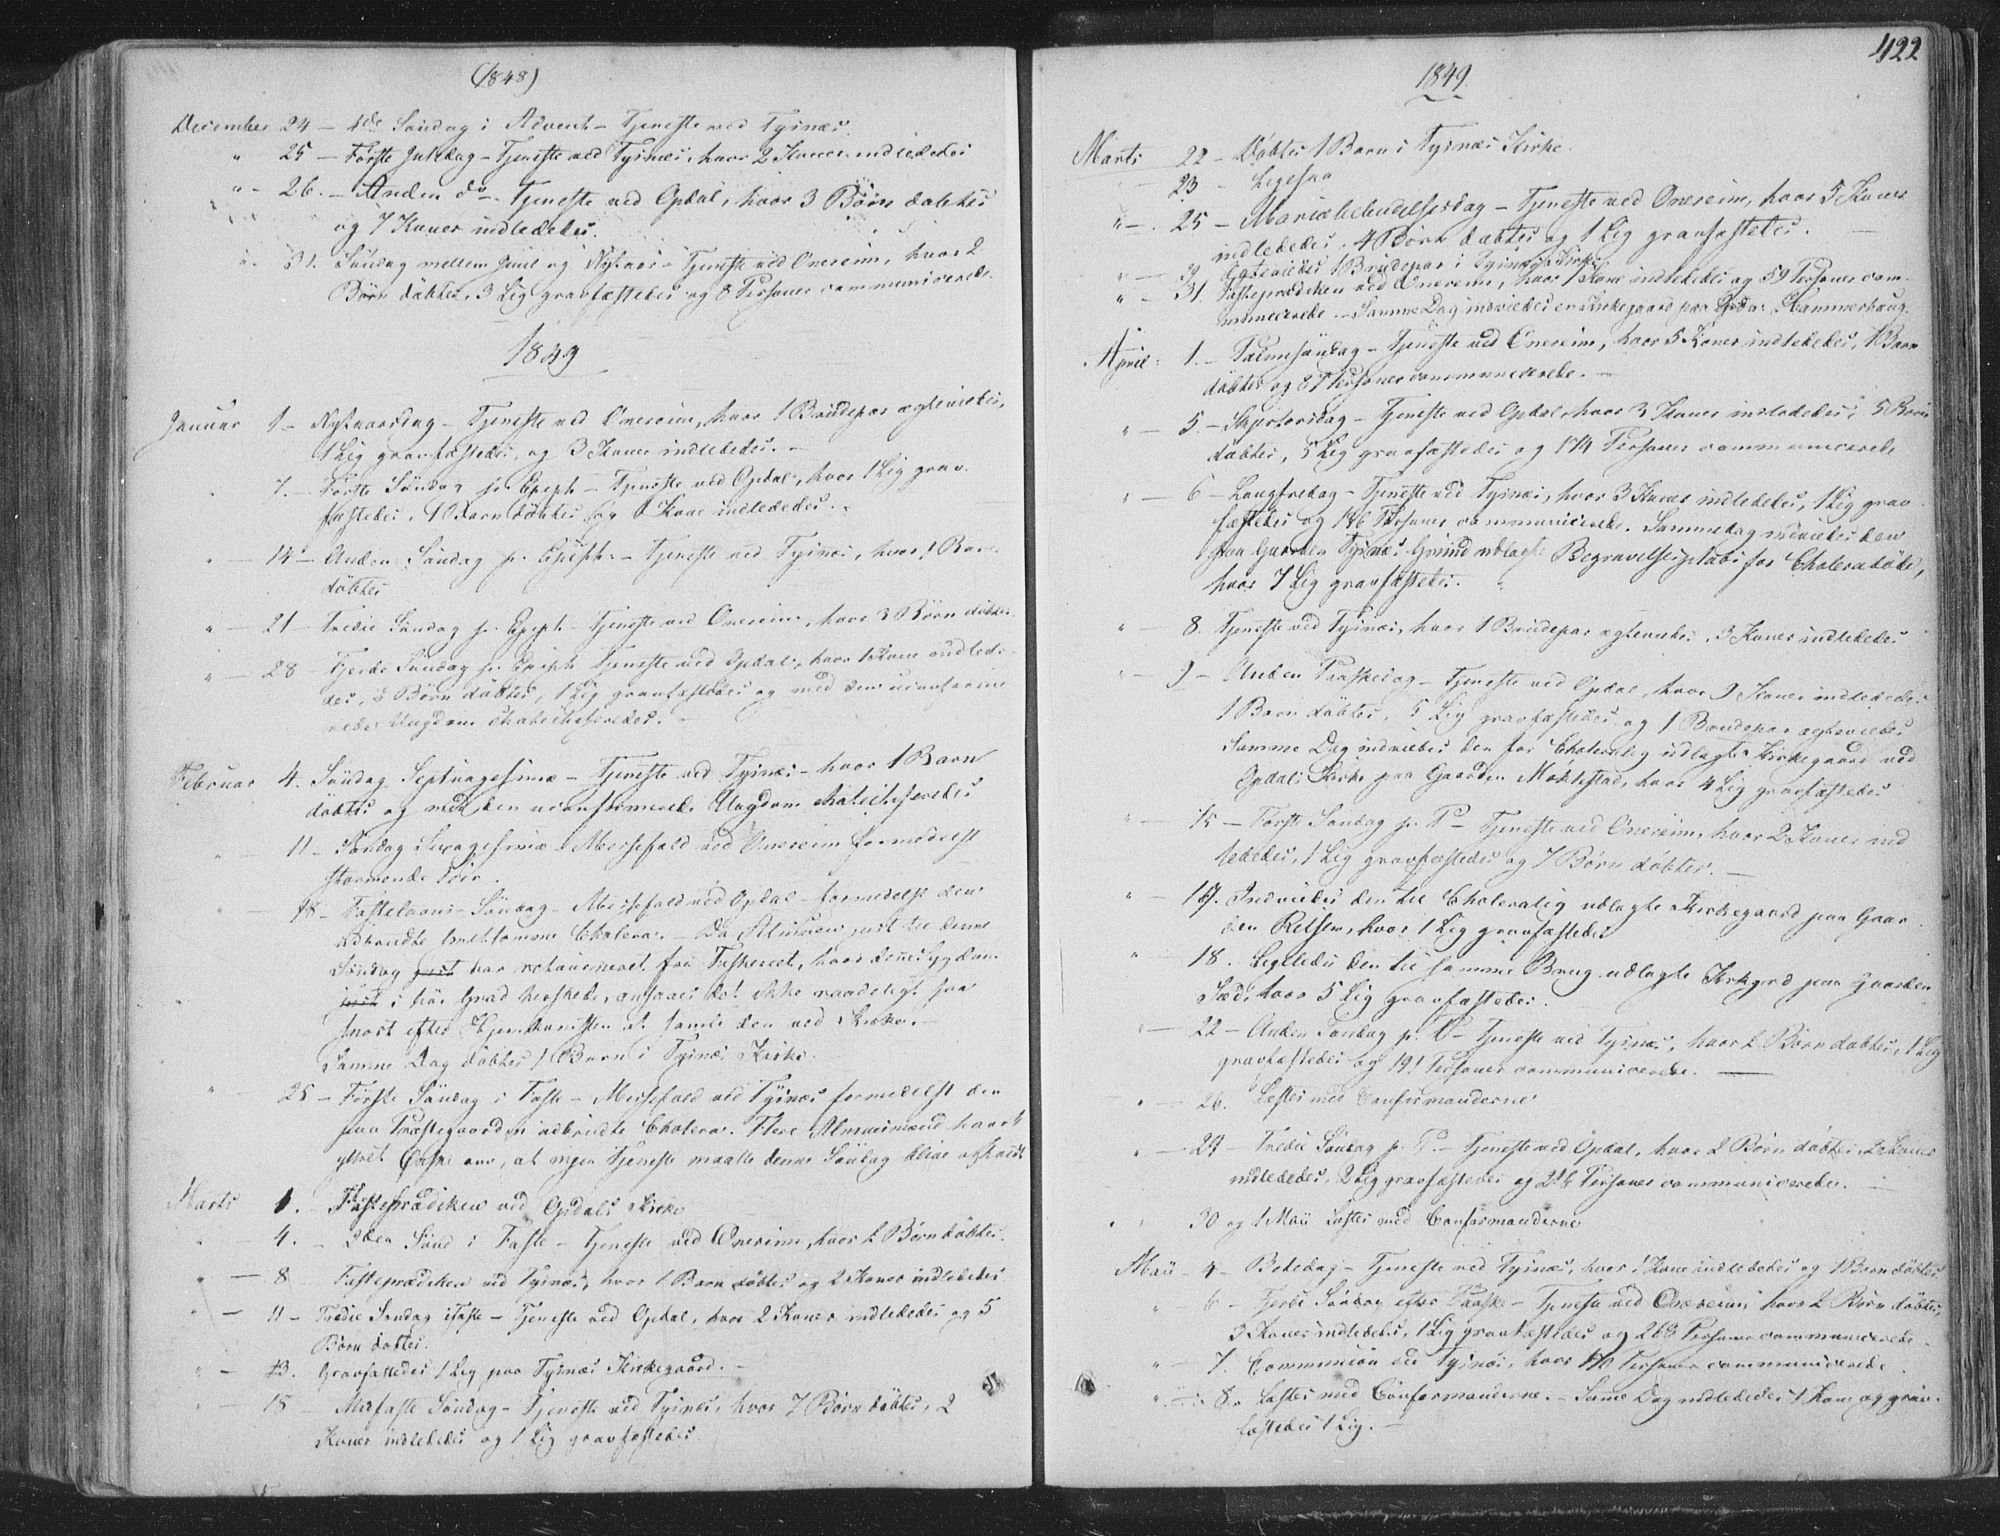 (1848)
December 24 – 4de Söndag i Advent – Tjeneste ved Tysnæs.
" 25 – Förste Juledag – Tjeneste ved Tysnæs, hvor 2 Koner indlededes
" - 26. – Anden do – Tjeneste ved Opdal, hvor 3 Börn döbtes
og 7 Koner indlededes.
" 31. Söndag mellem Juul og Nytaar – Tjeneste ved Onereim, hvor 2
Börn döbtes, 3 Lig gravfæstedes og 8 Personer communicerede.
1849
Januar 1 – Nytaarsdag – Tjeneste ved Onereim, hvor 1 Brudepar egteviedes,
1 Lig gravfæstedes, og 3 Koner indlededes. –
7. – Förste Söndag p. Epiph – Tjeneste ved Opdal, hvor 1 Lig grav-
fæstedes, Barn döbtes og Kone indlededes. –
" – 14 – Anden Söndag p. Epiph. – Tjeneste ved Tysnæs, hvor 1 Barn
döbtes
" – 21 – Tredie Söndag p. Epiph – Tjeneste ved Onereim, hvor 3 Börn döbtes
" – 28 – Fjerde Söndag p. Epiph Tjeneste ved Opdal, hvor 1 Kone indlede-
des, Börn döbtes, 1 Lig gravfæstedes og med den uconfirme-
rede Ungdom chatechiseredes. –
Februar 4. Söndag Septuagesimæ – Tjeneste ved Tysnæs – hvor 1 Barn
döbtes og med den uconfirmerede Ungdom chatechiseredes
11 – Söndag Sexagesimæ – Messefald ved Onereim formedelst
stormende Veir.
– 18 – Fastelavns-Söndag – Messefald ved Opdal – formedelst den
udbrudte smitsomme Cholera. – Da Almuen just til denne
Söndag har retourneret fra Fiskeriet, hvor denne Sygdom
i höi Grad herskede, ansaaes det ikke raadeligt saa
snart efter Hjemkomsten at samle den ved Kirke. –
Samme Dag döbtes 1 Barn i Tysnæs Kirke.
" 25 – Förste Söndag i Faste – Messefald ved Tysnæs formedelst den
paa Præstegaarden udbrudte Cholera. Flere Almuesmænd havde
yttret Önske om, at ingen Tjeneste maatte denne Söndag blive afholdt
Marts 1. – Fasteprædiken ved Opdals Kirke
" – 4. – 2den Sönd i Faste – Tjeneste ved Onereim, hvor 2 Börn döbtes.
" – 8 Fasteprædiken ved Tysnæs, hvor 1 Barn döbtes og 2 Koner indlededes
" – 11 – Tredie Söndag i Faste – Tjeneste ved Opdal, hvor 2 Koner indlededes og 5
Börn döbtes.
" – 13. Gravfæstedes 1 Lig paa Tysnæs Kirkegaard. –
" – 18 – Midfaste Söndag – Tjeneste ved Tysnæs, hvor 7 Börn döbtes, 2
Koner indlededes og 1 Lig gravfæstedes.
422
1849.
Marts 22 – Döbtes 1 Barn i Tysnæs Kirke.
23 – Ligesaa
" – 25 – Mariæ Bebudelsesdag – Tjeneste ved Onereim, hvor 5 Koner
indlededes, 4 Börn döbtes og 1 Lig gravfæstedes.
" – Egteviedes 1 Brudepar i Tysnæs Kirke
" – 31. Fasteprædiken ved Onereim, hvor 1 Kone indlededes og 59 Personer com-
municerede. – Samme Dag indviedes en Kirkegaard paa Hammerhaug.
April: 1. – Palmesöndag – Tjeneste ved Onereim, hvor 5 Koner indlededes, 1 Barn
döbtes og 87 Personer communicerede. –
" – 5. – Skjertorsdag – Tjeneste ved Opdal, hvor 3 Koner indlededes, 5 Börn
döbtes, 5 Lig gravfæstedes og 174 Personer communicerede
" – 6 – Langfredag – Tjeneste ved Tysnæs, hvor 3 Koner indlededes, 1 Lig grav-
fæstedes og 146 Personer communicerede. Sammedag indviedes den
paa Gaarden Tysnæs Grund udlagte Begravelsesplads for Choleradöde,
hvor 7 Lig gravfæstedes.
" – 8. Tjeneste ved Tysnæs, hvor 1 Brudepar egteviedes, 3 Koner indlededes
" – 9 – Anden Paaskedag – Tjeneste ved Opdal, hvor 9 Koner indlededes
1 Barn döbtes, 5 Lig gravfæstedes og 1 Brudepar egteviedes
Samme Dag indviedes den for Choleralig udlagte Kirkegaard ved
Opdals Kirke paa Gaarden Möklestad, hvor 4 Lig gravfæstedes
" – 15 – Förste Söndag p. P – Tjeneste ved Onereim, hvor 2 Koner ind-
lededes, 1 Lig gravfæstedes og 7 Börn döbtes. –
" – 17. Indviedes den til Choleralig udlagte Kirkegaard paa Gaar-
den Relsen, hvor 1 Lig gravfæstedes
" – 18. Ligeledes den til samme Brug udlagte Kirkgrd paa Gaarden
hvor 5 Lig gravfæstedes.
" – 22 – Anden Söndag p. P – Tjeneste ved Tysnæs, hvor 2 Börn döbtes, 1 Lig
gravfæstedes og 191 Personer communicerede. –
" – 26. Læstes med Confirmanderne
" – 29 – Tredie Söndag p. P. – Tjeneste ved Opdal, hvor 2 Börn döbtes, 2 Koner
indlededes, 2 Lig gravfæstedes og Personer communicerede. –
" " 30 og 1 Maii Læstes med Confirmanderne
Maii – 4 – Bededag – Tjeneste ved Tysnæs, hvor 1 Kone indlededes og 1 Barn döbtes
" 6 – Fjerde Söndag efter Paaske – Tjeneste ved Onereim, hvor 2 Börn döbtes,
3 Koner indlededes, 1 Lig gravfæstedes og 263 Personer communicerede
" – 7. Communion ved Tysnæs, hvor Personer communicerede
" – 8. Læstes med Confirmanderne. – Samme Dag indlededes 1 Kone og grav-
fæstedes 1 Lig. –